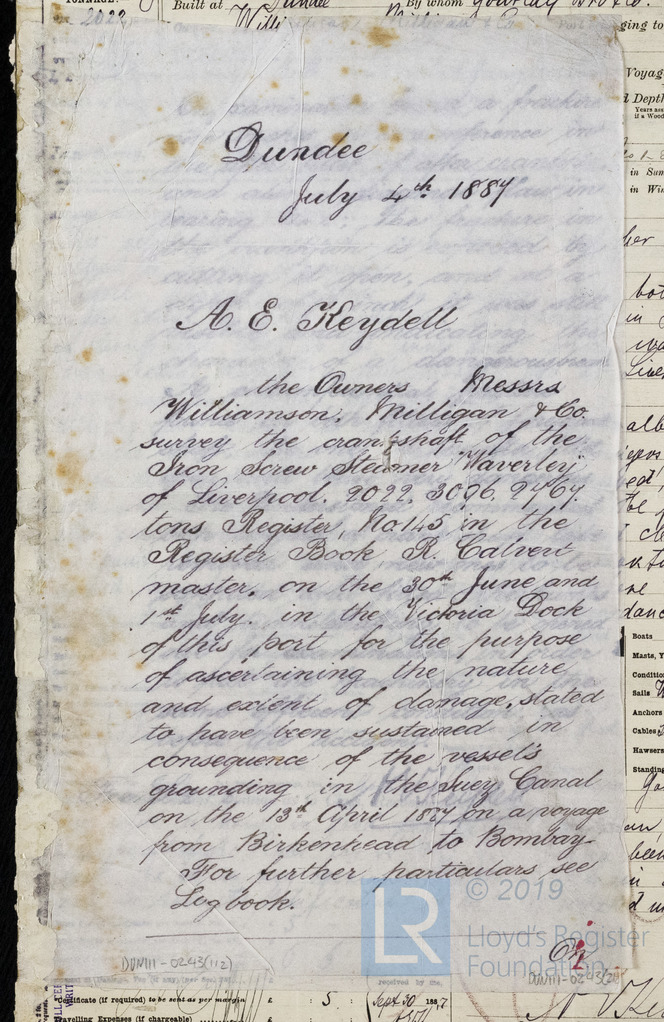 TONNAGE.
2022
Built at Dundee By whom Gourlay Bros & Co.
ging to
Voyag
d Depth
Years ass
if a Wood
in Sum
in Win
Dundee
July 4th 1887
A. E. Keydell
the Owners Messrs
Williamson, Milligan & Co.
survey the crankshaft of the
Iron Screw Steamer "Waverley"
of Liverpool. 2022. 3096. 2767.
tons Register, No. 145 in the
Register Book R. Calvert
master. on the 30th June and
1st July. in the Victoria Dock
of this port for the purpose
of ascertaining the nature
and extent of damage, stated
to have been sustained in
consequence of the vessel's
grounding in the Suez Canal
on the 13th April 1887 on a voyage
from Birkenhead to Bombay.
For further particulars see
Logbook.
Boats
Masts, Y
Condition
Sails
Anchors
Cables
Hawsers
Standing
LR
© 2019
Lloyd's Register
Foundation
On
DUN111-0243(112)
received by the
Certificate (if required) to be sent as per margin £ : 5 : Sept 30 1887
Travelling Expenses (if chargeable) £